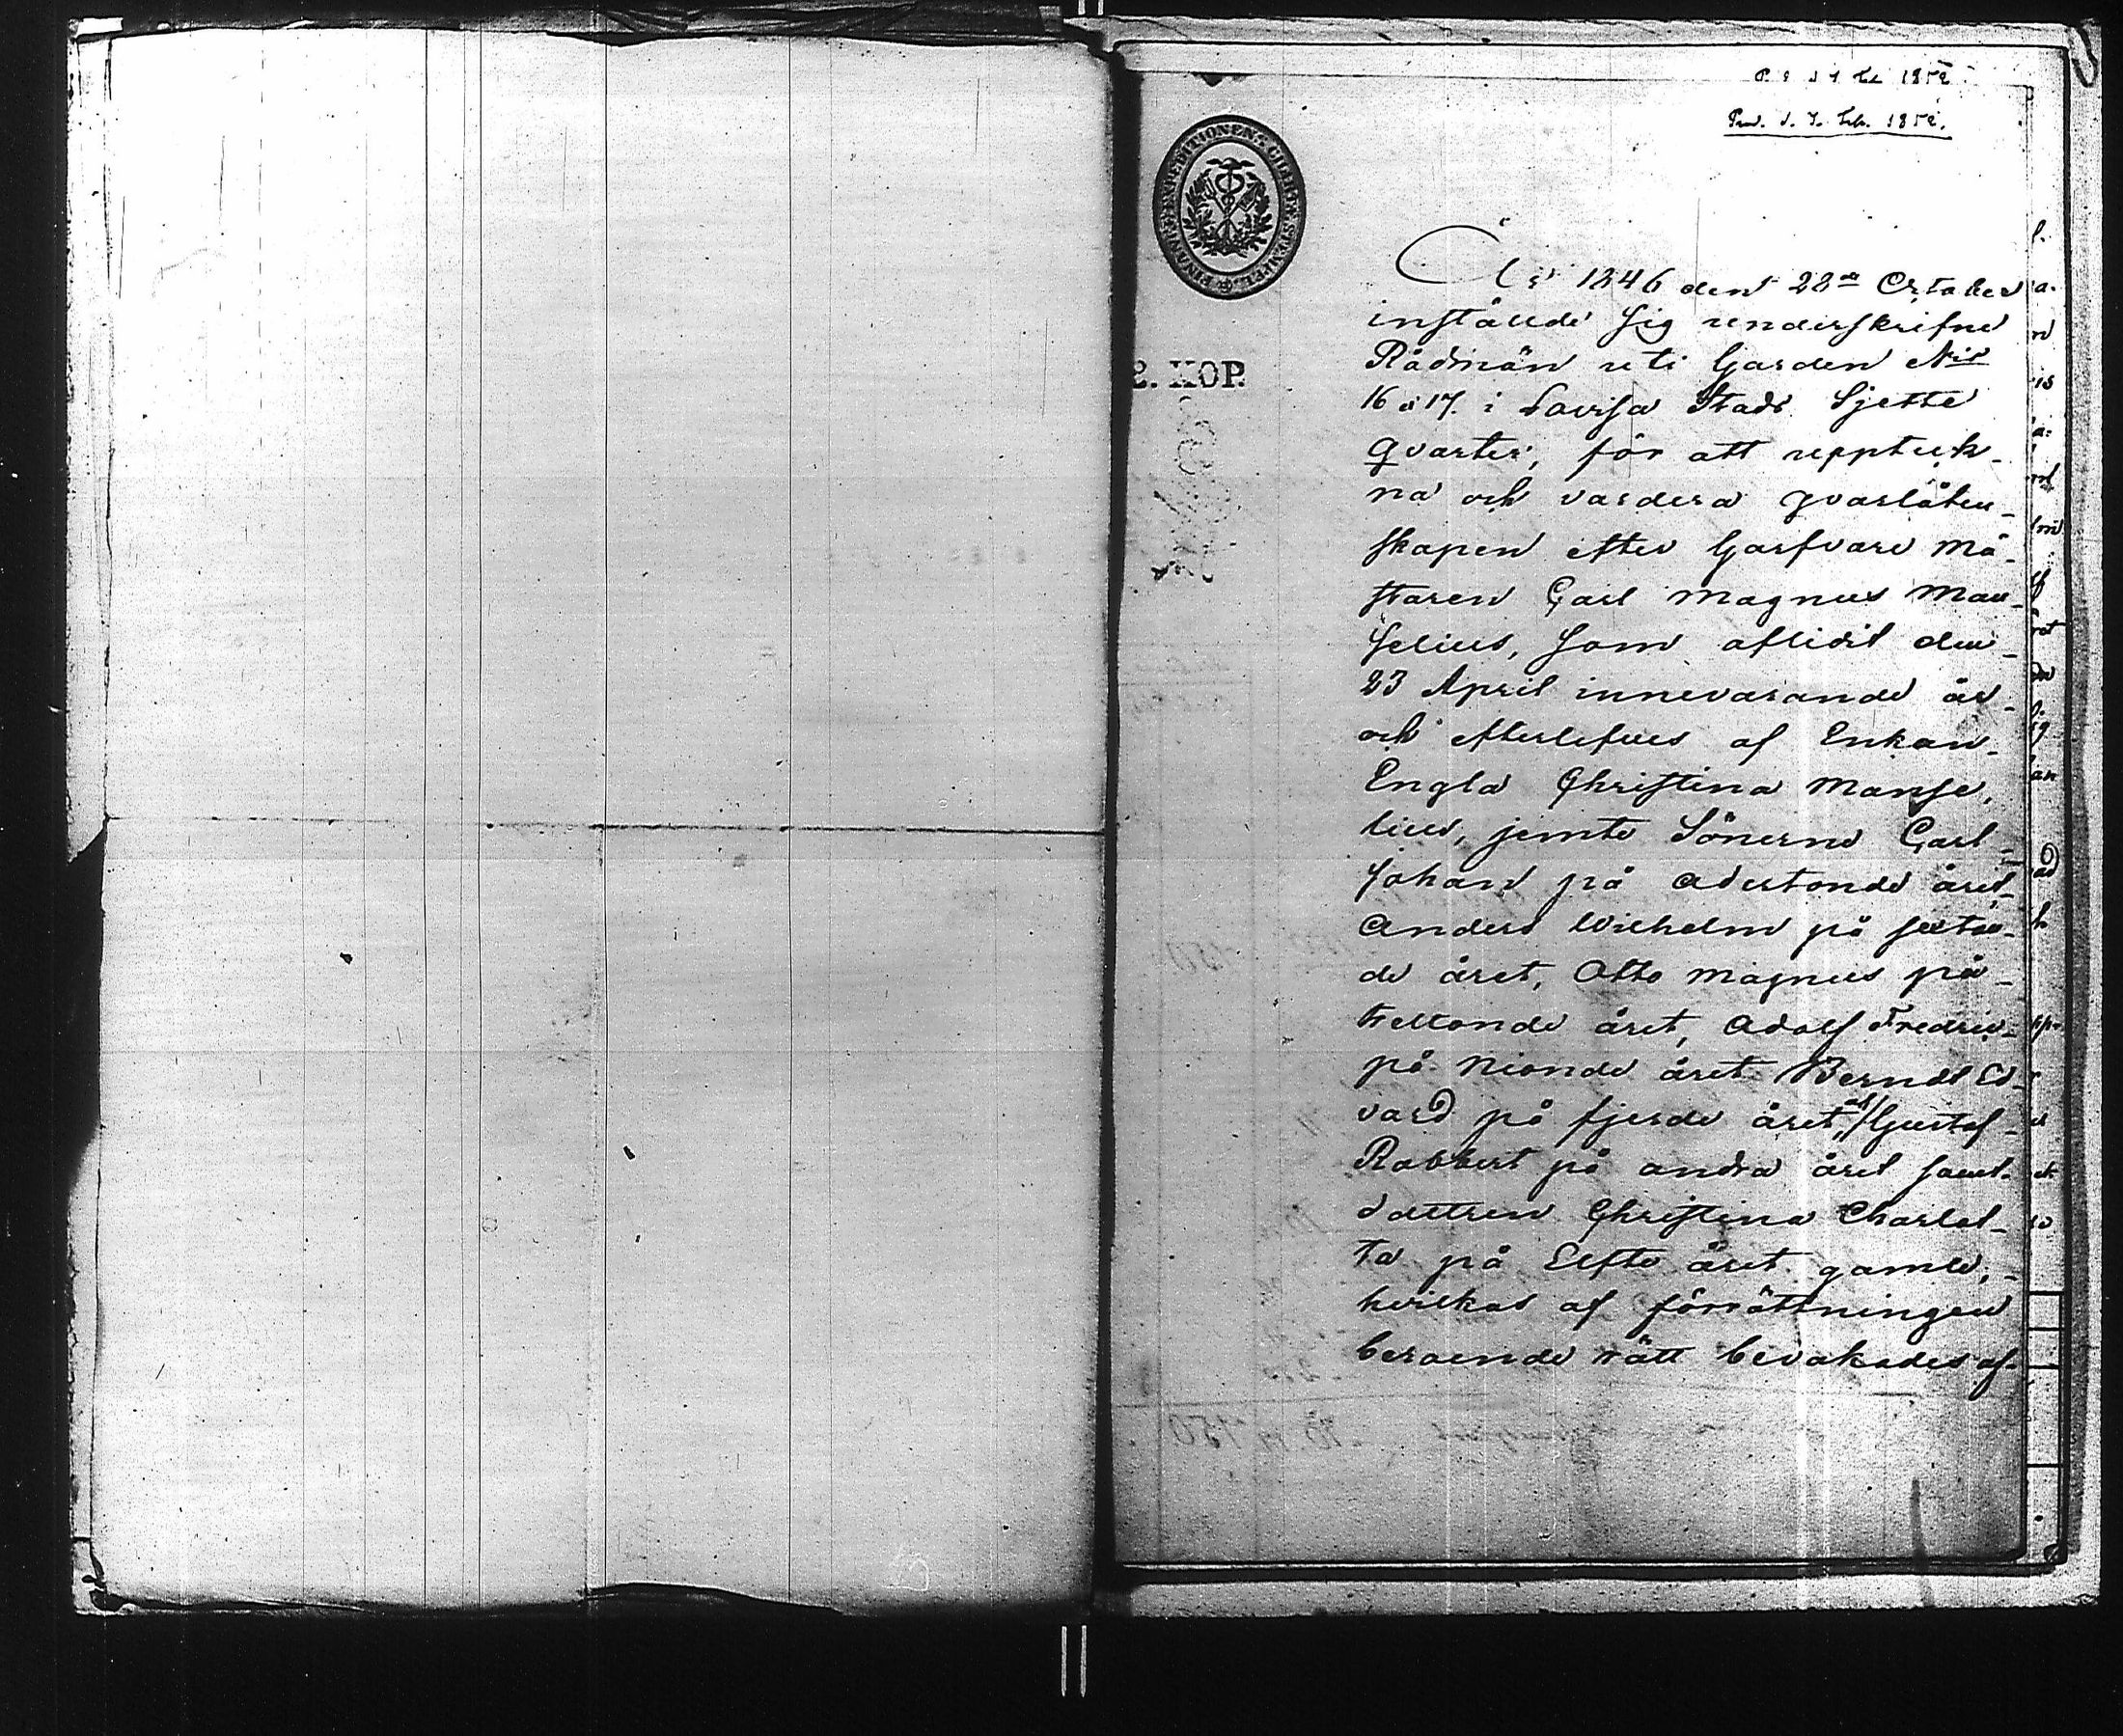 1852
Prod. d. 7. Feb. 1852.
FINANCE EXPEDITIONENS CHARTÆ STEMPEL
2. KOP.
År 1846 den 28de October
instälde sig underskrifne
Rådmän uti Garden Nis
16 & 17. i Lovisa Stads Sjette
Qvarter, för att upptek-
na och vardera qvarlåten-
skapen efter Garfvare mä-
staren Carl Magnus Man-
selius, som aflidit den
23 April innevarande år
och efterlefves af Enkan
Engla Christina Manse,
lius, jemte Sönerne Carl
Johan på adertonde året,
Anders Wilhelm på sexton-
de året, Otto Magnus på
trettonde året, Adolf Fredric
på Nionde året Berndt Ed-
vard på fjerde året, och Gustaf
Robbert på andra året samt
dottren Christina Charlot-
ta på Elfte året gamle,
hvilkas af förrättningen
beroende rätt bevakades af